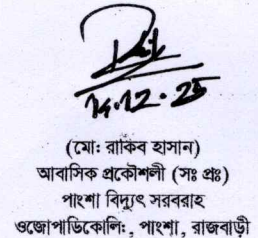 ১৪.১২.২৫
(মো: রাকিব হাসান)
আবাসিক প্রকৌশলী (সঃ প্রঃ)
পাংশা বিদ্যুৎ সরবরাহ
ওজোপাডিকোলিঃ, পাংশা, রাজবাড়ী